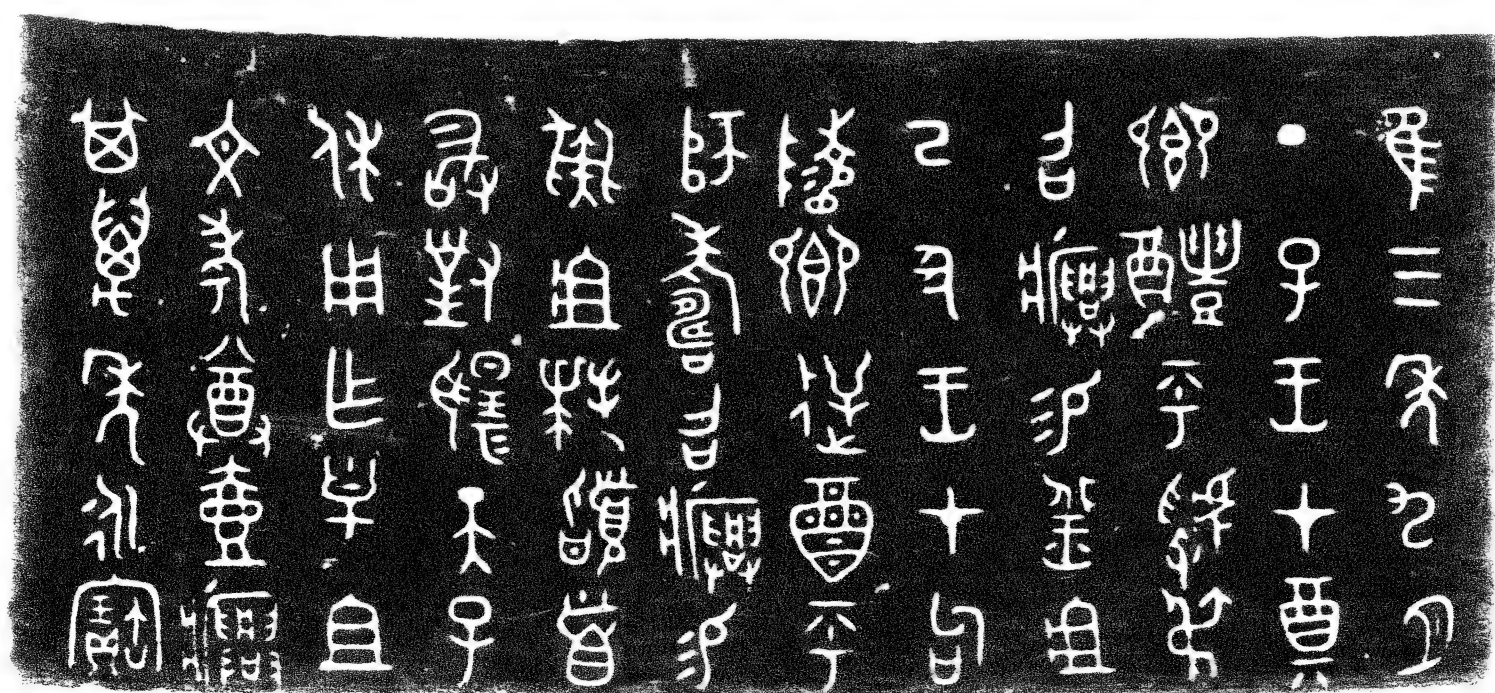 隹三年九月
丁巳王才奠
鄉醴乎虢弔
召𤼈易羔俎
己丑王才句
陵鄉逆酉乎
師壽召𤼈易
彘俎拜𩒨首
敢對揚天子
休用乍皇且
文考尊壺𤼈
其萬年永寶